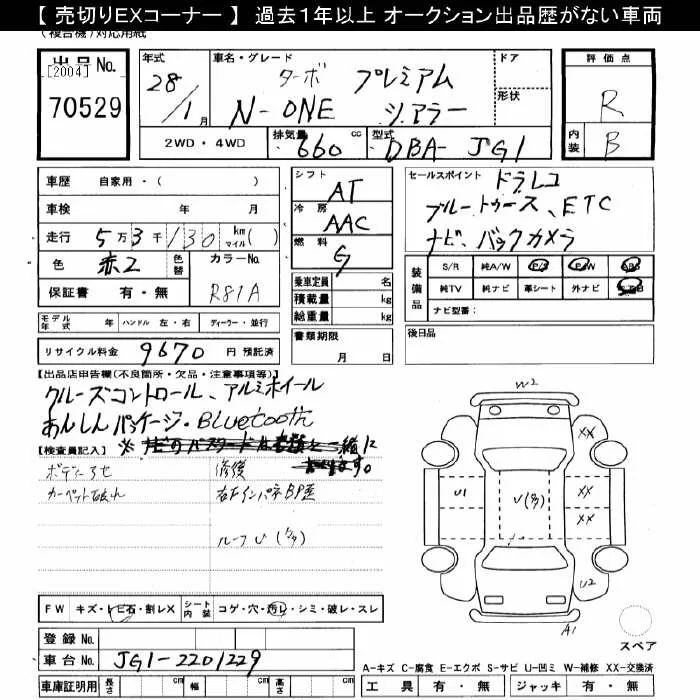 【 売切りEXコーナー 】 過去１年以上 オークション出品歴がない車両
(複合機)対応用紙
出品 No.
[2004]
70529
年式
28/1月
車名・グレード
ターボ プレミアム
N-ONE ツアラー
ドア
形状
評価点
R
内装
B
2WD ・ 4WD
排気量 660 cc
型式 DBA- JG1
車歴 自家用・( )
車検 年 月
走行 5万3千130 km マイル( )
色 赤2 色替 カラーNo.
保証書 有・無 R81A
シフト AT
冷房 AAC
燃料 G
乗車定員 名
積載量 kg
総重量 kg
セールスポイント ドラレコ
ブルートゥース、ETC
ナビ、バックカメラ
装備品
S/R 純A/W P/S P/W ABS
純TV 純ナビ 革シート 外ナビ
ナビ型番:
モデル年式 年 ハンドル 左・右 ディーラー・並行
書類期限
月 日
後日品
リサイクル料金 9670 円 預託済
【出品店申告欄(不良箇所・欠品・注意事項等)】
クルーズコントロール、アルミホイール
あんしんパッケージ・Bluetooth
【検査員記入】
ボデー
カーペット破れ
修復
右Fインパネ BP歪
ルーフU(多)
W2
XX
U1
U(多)
XX
XX
U2
A1
スペア
FW キズ・トビ石・割レX シート内装 コゲ・穴・汚レ・シミ・破レ・スレ
登録 No.
車台 No. JG1-2201229
車庫証明用 長さ cm 幅 cm 高さ cm
A-キズ C-腐食 E-エクボ S-サビ U-凹ミ W-補修 XX-交換済
工具 有・無 ジャッキ 有・無